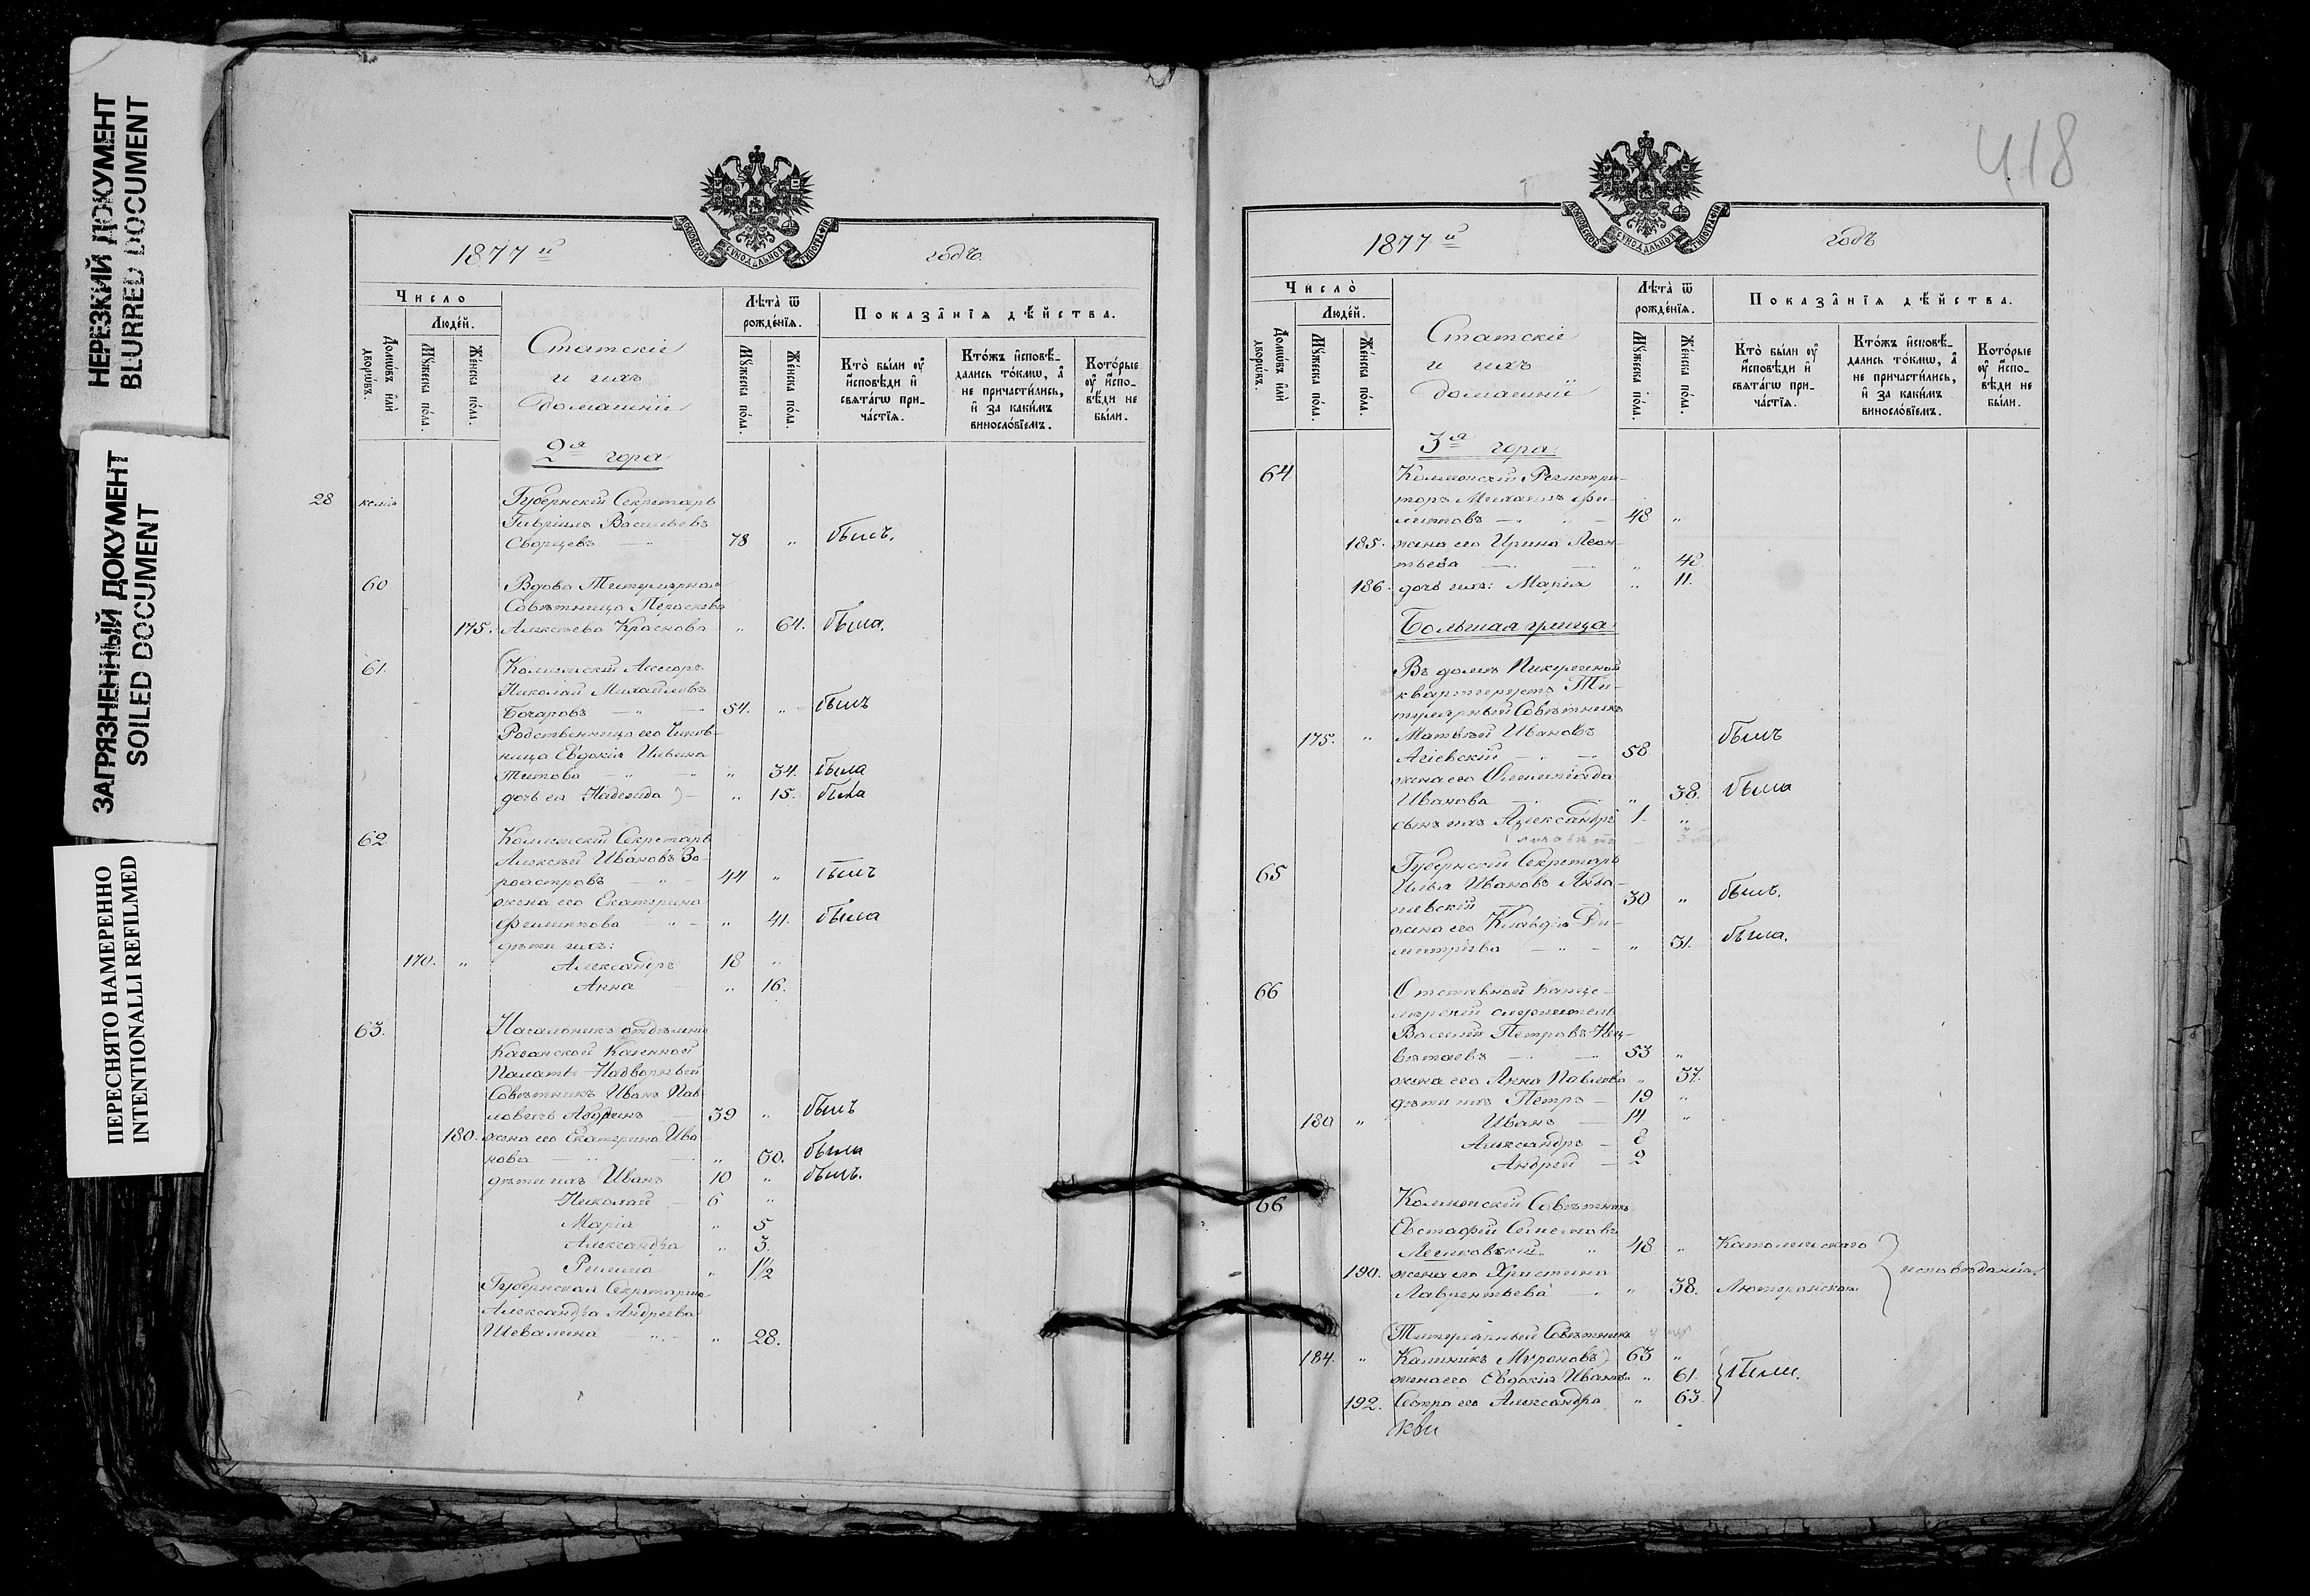 НЕРЕЗКИЙ ДОКУМЕНТ
BLURRED DOCUMENT
ЗАГРЯЗНЕННЫЙ ДОКУМЕНТ
SOILED DOCUMENT
ПЕРЕСНЯТО НАМЕРЕННО
INTENTIONALLI REFILMED
МОСКОВСКОЙ СѴНОДАЛЬНОЙ ТИПОГРАФІИ
1877 й годъ
Число
Людей.
Домѡвъ или дворѡвъ.
Мꙋжеска пола.
Женска пола.
Статскіе
и ихъ
домашніе
Лѣта ѿ рожденїѧ.
Мꙋжеска пола.
Женска пола.
Показанїѧ дѣйства.
Кто были оу исповѣди и свѧтагѡ причастїѧ.
Ктожъ исповѣдались токмѡ, а не причастились, и за какимъ винословїемъ.
Которые оу исповѣди не были.
2я гора
28 келія Губернскій Секретарь
Гавріилъ Васильевъ
Сворцевъ — 78 " былъ.
60 Вдова Титулярная
Совѣтница Параскева
175. Алексѣева Краснова " 64. была.
61. Коллежскій Ассесоръ
Николай Михайловъ
Бочаровъ — " — 54. " былъ
Родственница его Чинов-
ница Евдокія Ильина
Титова — " 34. была
дочь ея Надежда) — " 15. была
62. Коллежскій Секретарь
Алексѣй Ивановъ Зо-
роастровъ — 44 " былъ
жена его Екатерина
Филиппова — " 41. была
дѣти ихъ:
170. " Александръ 18 "
Анна " 16.
63. Начальникъ отдѣленія
Казанской Казенной
Палаты Надворный
Совѣтникъ Иванъ Пав
ловичъ — 39 " былъ
180. жена его Екатерина Ива
нова — " 30. была
дѣти ихъ Иванъ 10 " былъ.
Николай — 6 "
Марія " 5
Александра " 3.
" 1½
Губернская Секретарша
Александра Андреева
Шевалина " 28.
418
МОСКОВСКОЙ СѴНОДАЛЬНОЙ ТИПОГРАФІИ
1877 й годъ
Число
Людей.
Домѡвъ или дворѡвъ.
Мꙋжеска пола.
Женска пола.
Статскіе
и ихъ
домашніе
Лѣта ѿ рожденїѧ.
Мꙋжеска пола.
Женска пола.
Показанїѧ дѣйства.
Кто были оу исповѣди и свѧтагѡ причастїѧ.
Ктожъ исповѣдались токмѡ, а не причастились, и за какимъ винословїемъ.
Которые оу исповѣди не были.
3я гора
64 Коллежскій Регистра-
торъ Михаилъ Фи-
липповъ — 48 "
185. жена его Ирина Леон-
тьева — " 48
186. дочь ихъ: Марія " 11.
Большая улица
Въ домѣ
квартируетъ Ти-
тулярный Совѣтникъ
175. " Матвѣй Ивановъ былъ
Агіевскій — 58
жена его Олимпіада
Иванова — " 38. была
сынъ ихъ Александръ 1. "
65 Губернскій Секретарь
Илья Ивановъ
30 " былъ.
жена его Клавдія Ди-
митріева — " 31. была.
66 Отставной Канце-
лярскій служитель
Василій Петровъ Нец-
вѣтаевъ — 53 "
жена его Анна Павлова " 37.
дѣти ихъ Петръ — 19 "
180 " Иванъ — 14. "
Александръ — 8
Андрей — 2
66 Коллежскій Совѣтникъ
Евстафій Семеновъ
48 " Католическаго
190. жена его Христина исповѣданія.
Лаврентьева — " 38. Лютеранскаго
(Титулярный Совѣтникъ
184. " Калиникъ Мироновъ) 63 "
жена его Евдокія Иванова " 61. были.
192. Сестра его Александра " 63.